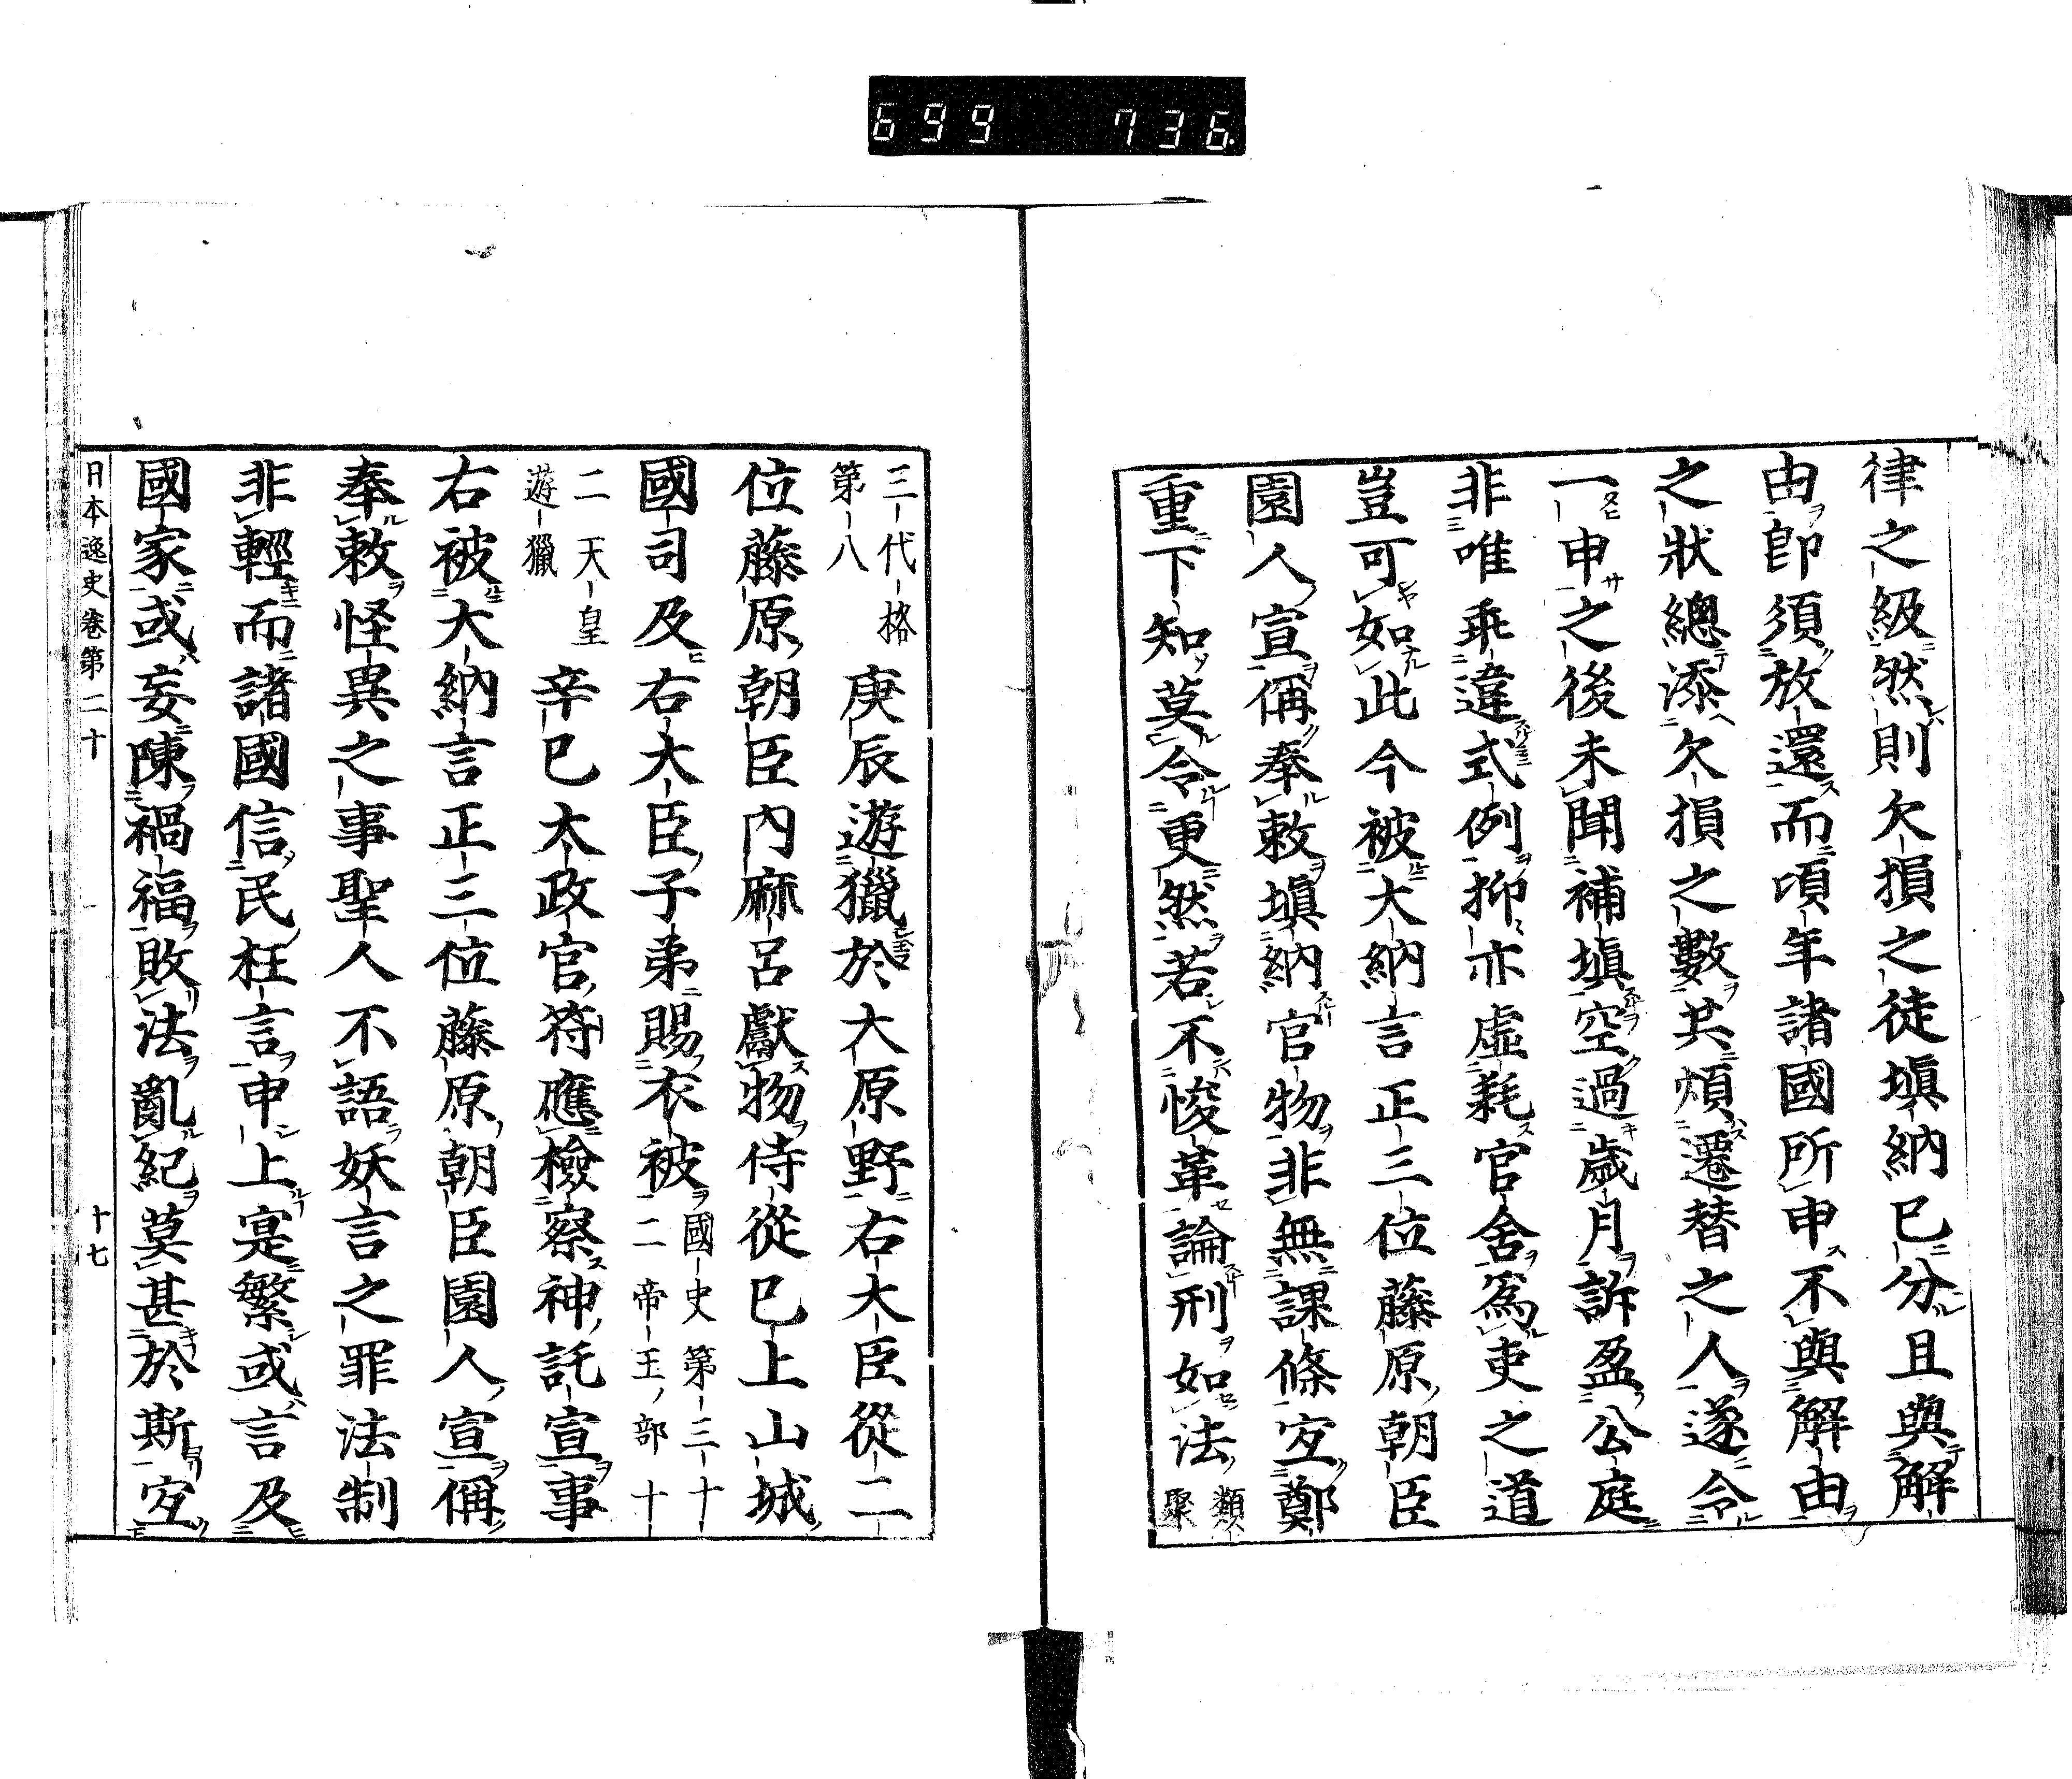 699 736.
律之級然則欠損之徒塡納已分且與解
由卽須放還而頃年諸國所申不與解由
之狀總添欠損之數共煩遷替之人遂令
一申之後未聞補塡空過歲月訴盈公庭
非唯乖違式例抑亦虛耗官舍爲吏之道
豈可如此今被大納言正三位藤原朝臣
園人宣偁奉敕塡納官物非無課條宐鄭
重下知莫令更然若不悛革論刑如法類聚
三代格第八 庚辰遊獵於大原野右大臣從二
位藤原朝臣內麻呂獻物侍從已上山城
國司及右大臣子弟賜衣被國史第三十二帝王部十
二天皇遊獵 辛巳太政官符應檢察神託宣事
右被大納言正三位藤原朝臣園人宣偁
奉敕怪異之事聖人不語妖言之罪法制
非輕而諸國信民枉言申上寔繁或言及
國家或妄陳禍福敗法亂紀莫甚於斯宐
日本逸史卷第二十 十七